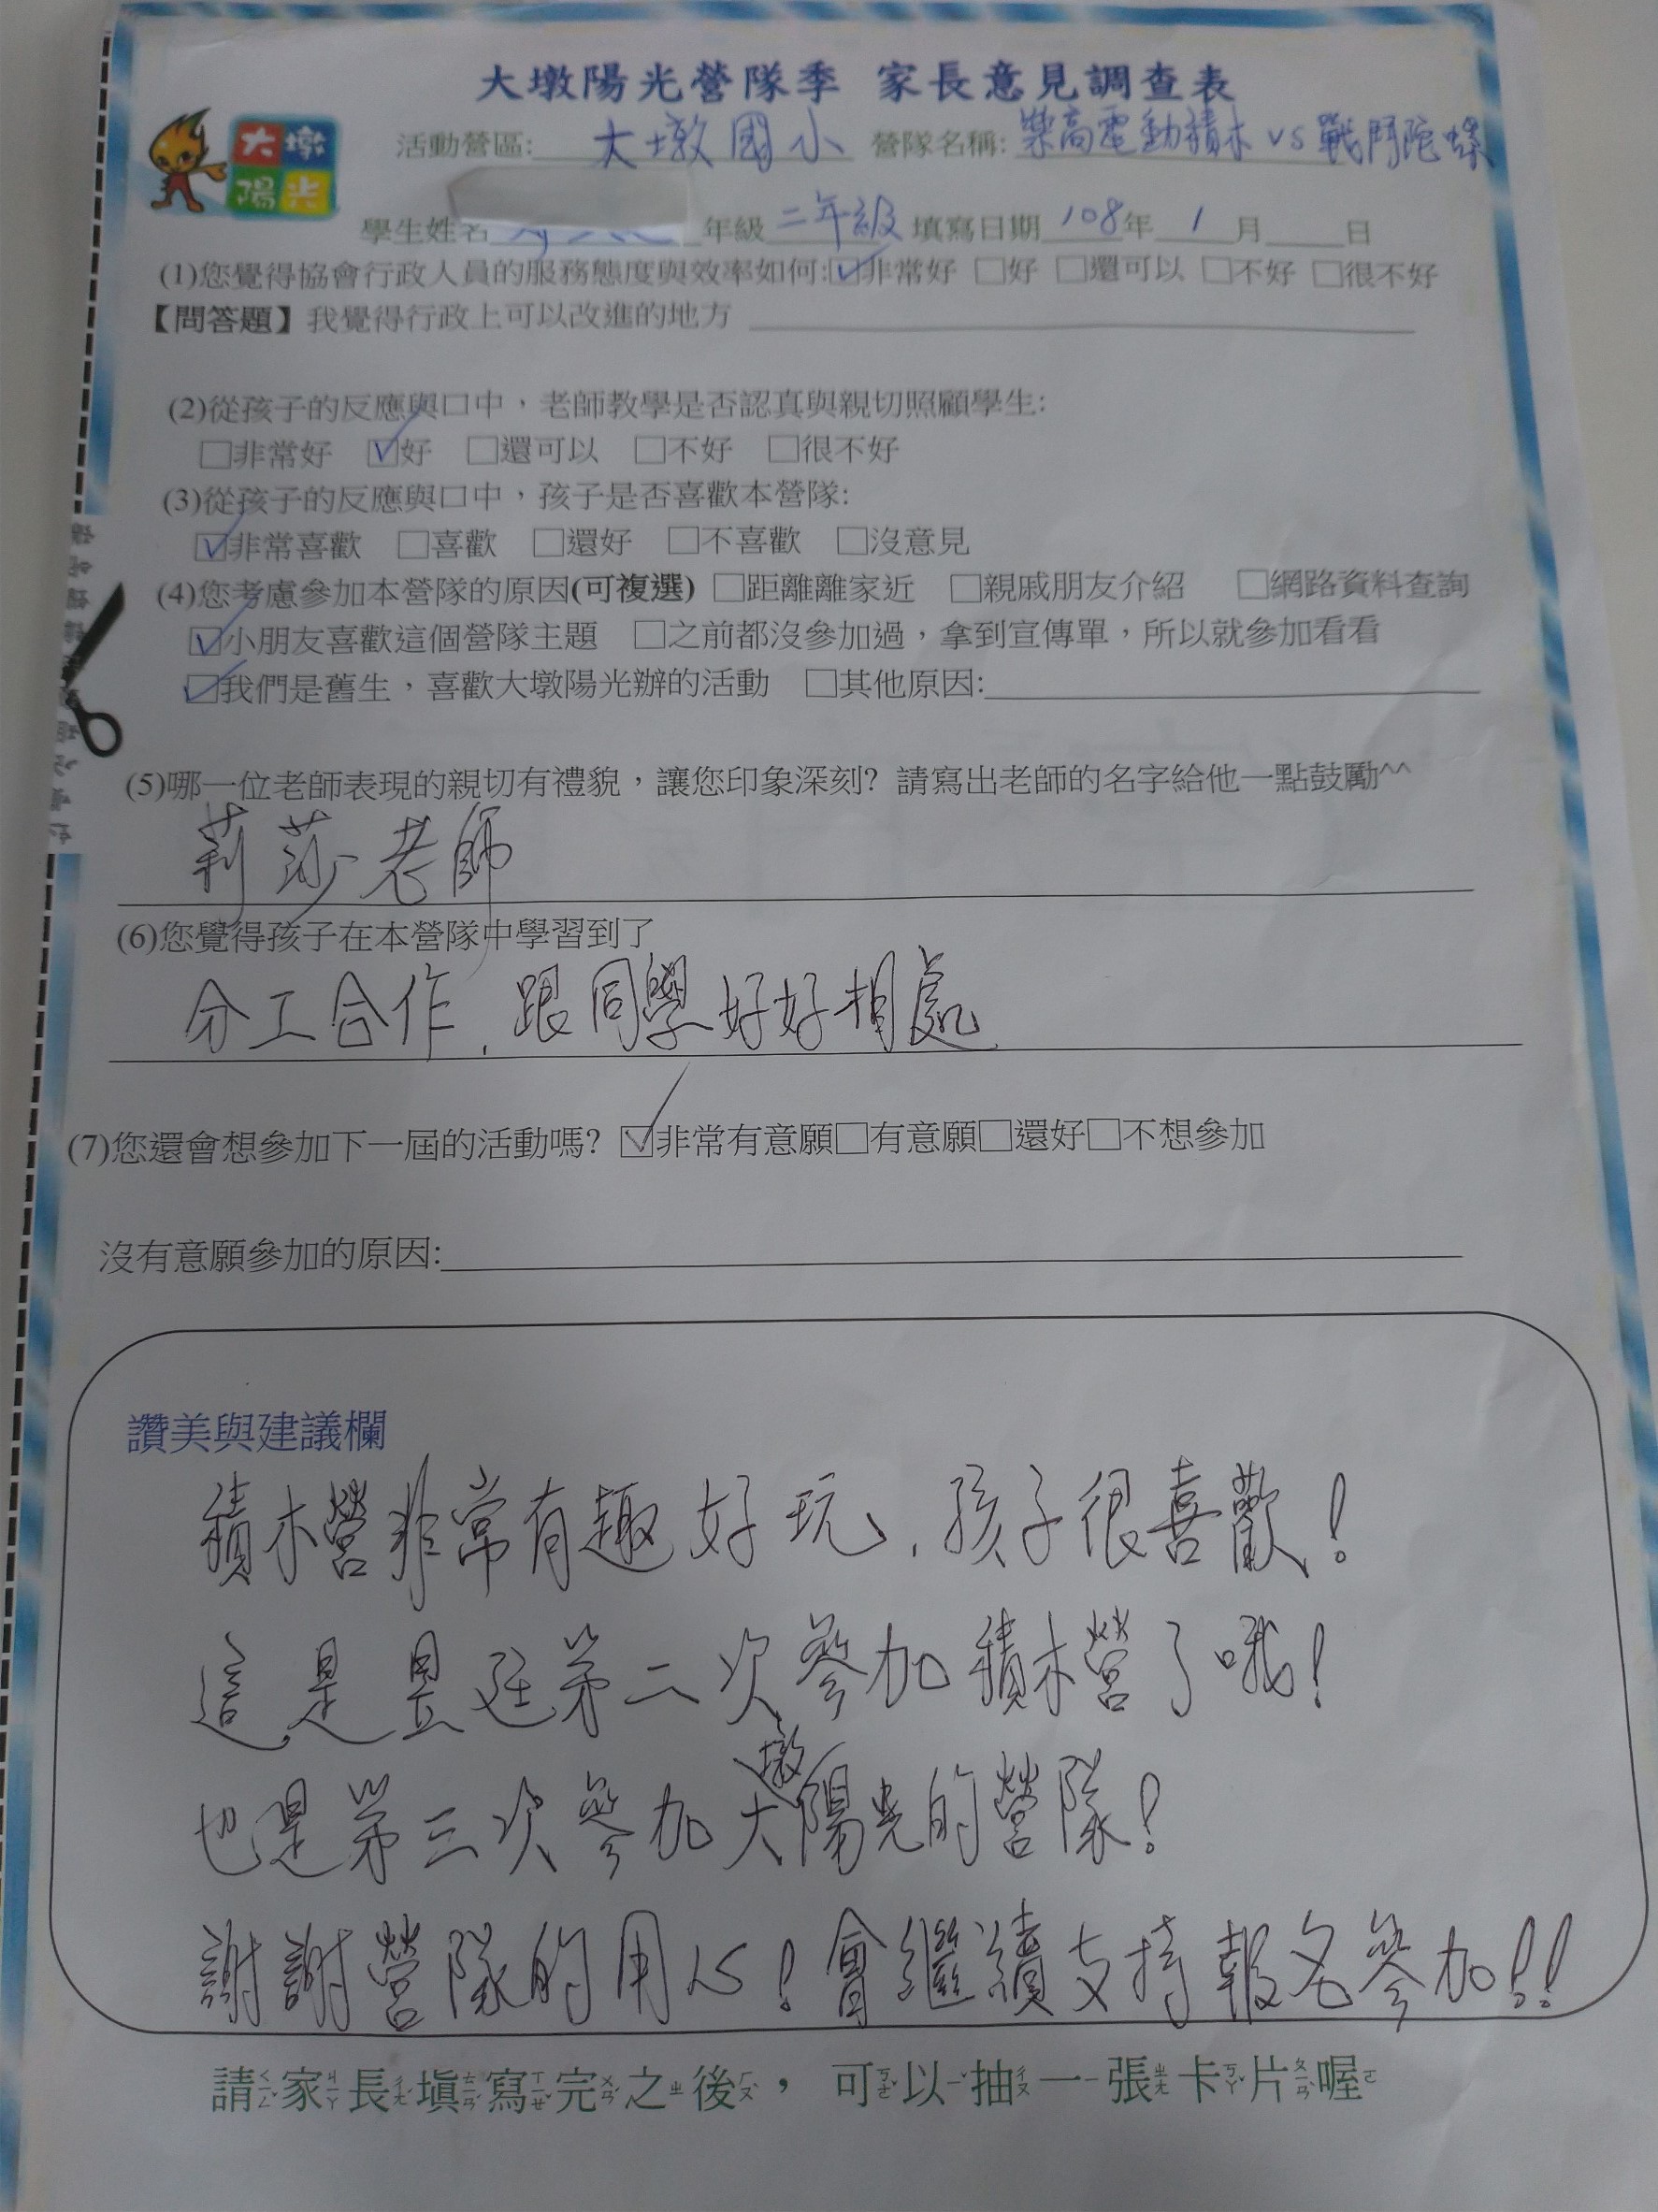 大墩陽光營隊季 家長意見調查表
大墩
陽光
活動營區: 大墩國小 營隊名稱: 樂高電動積木 vs 戰鬥陀螺
學生姓名 年級 二年級 填寫日期 108年 1月 日
(1)您覺得協會行政人員的服務態度與效率如何:☑非常好 □好 □還可以 □不好 □很不好
【問答題】我覺得行政上可以改進的地方
(2)從孩子的反應與口中，老師教學是否認真與親切照顧學生:
□非常好 ☑好 □還可以 □不好 □很不好
(3)從孩子的反應與口中，孩子是否喜歡本營隊:
☑非常喜歡 □喜歡 □還好 □不喜歡 □沒意見
(4)您考慮參加本營隊的原因(可複選) □距離離家近 □親戚朋友介紹 □網路資料查詢
☑小朋友喜歡這個營隊主題 □之前都沒參加過，拿到宣傳單，所以就參加看看
☑我們是舊生，喜歡大墩陽光辦的活動 □其他原因:
(5)哪一位老師表現的親切有禮貌，讓您印象深刻? 請寫出老師的名字給他一點鼓勵^^
莉莎老師
(6)您覺得孩子在本營隊中學習到了
分工合作、跟同學好好相處
(7)您還會想參加下一屆的活動嗎? ☑非常有意願□有意願□還好□不想參加
沒有意願參加的原因:
讚美與建議欄
積木營非常有趣好玩、孩子很喜歡!
這是昱廷第二次參加積木營了哦!
也是第三次參加大墩陽光的營隊!
謝謝營隊的用心! 會繼續支持報名參加!!
請家長填寫完之後，可以抽一張卡片喔